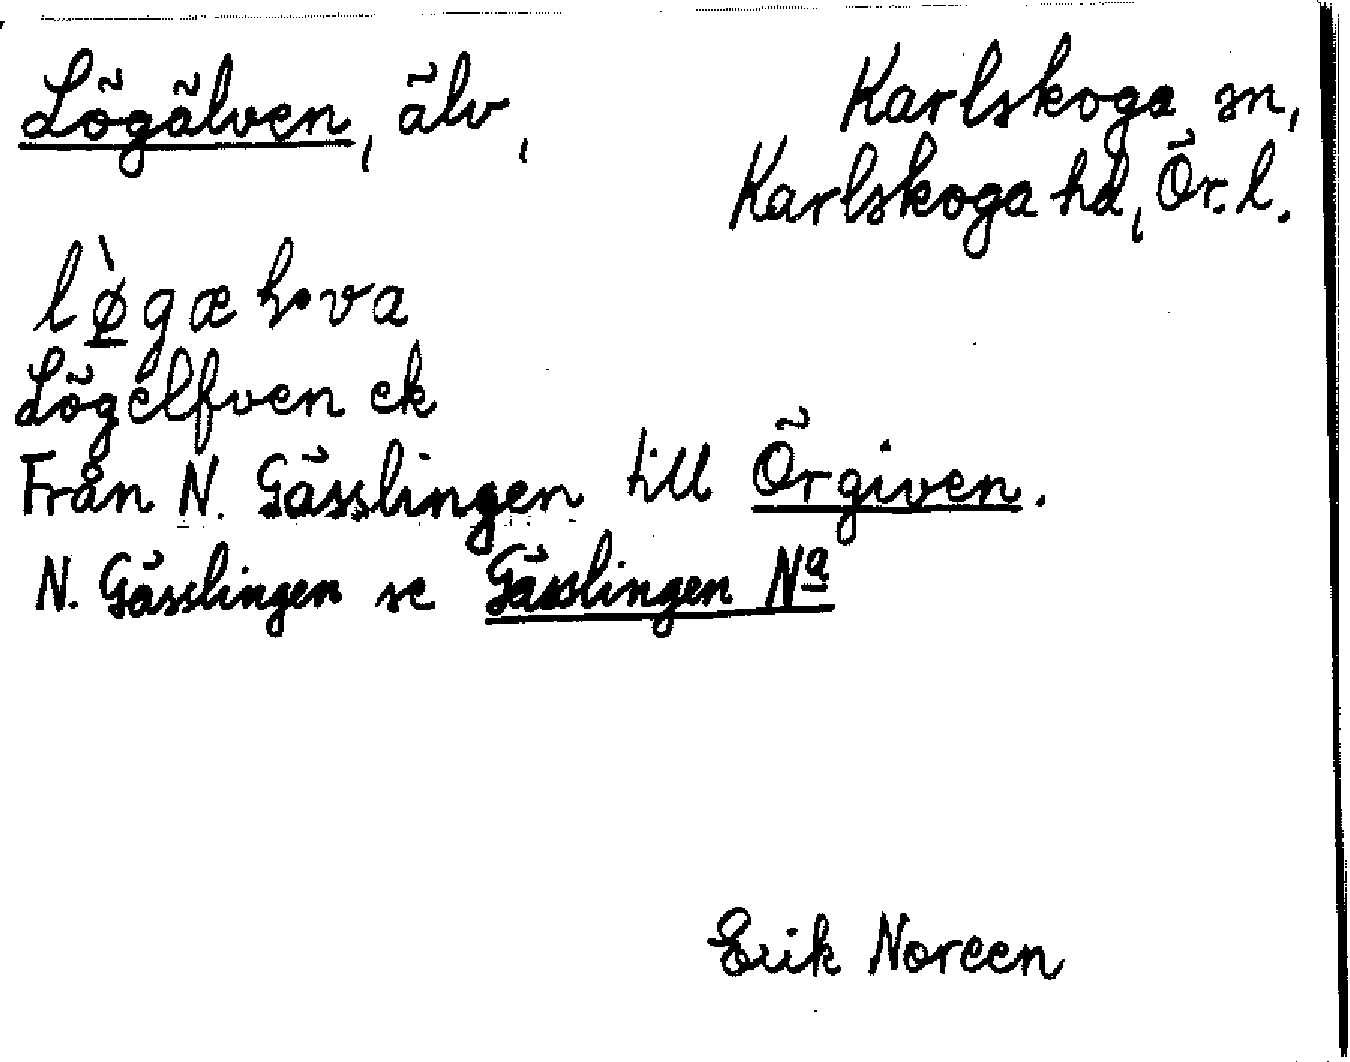 Lögälven, älv, Karlskoga sn,
Karlskoga hd, Ör. l.
Lögelfven ek
Från N. Gässlingen till Örgiven.
N. Gässlingen se Gässlingen Nª
Erik Noreen